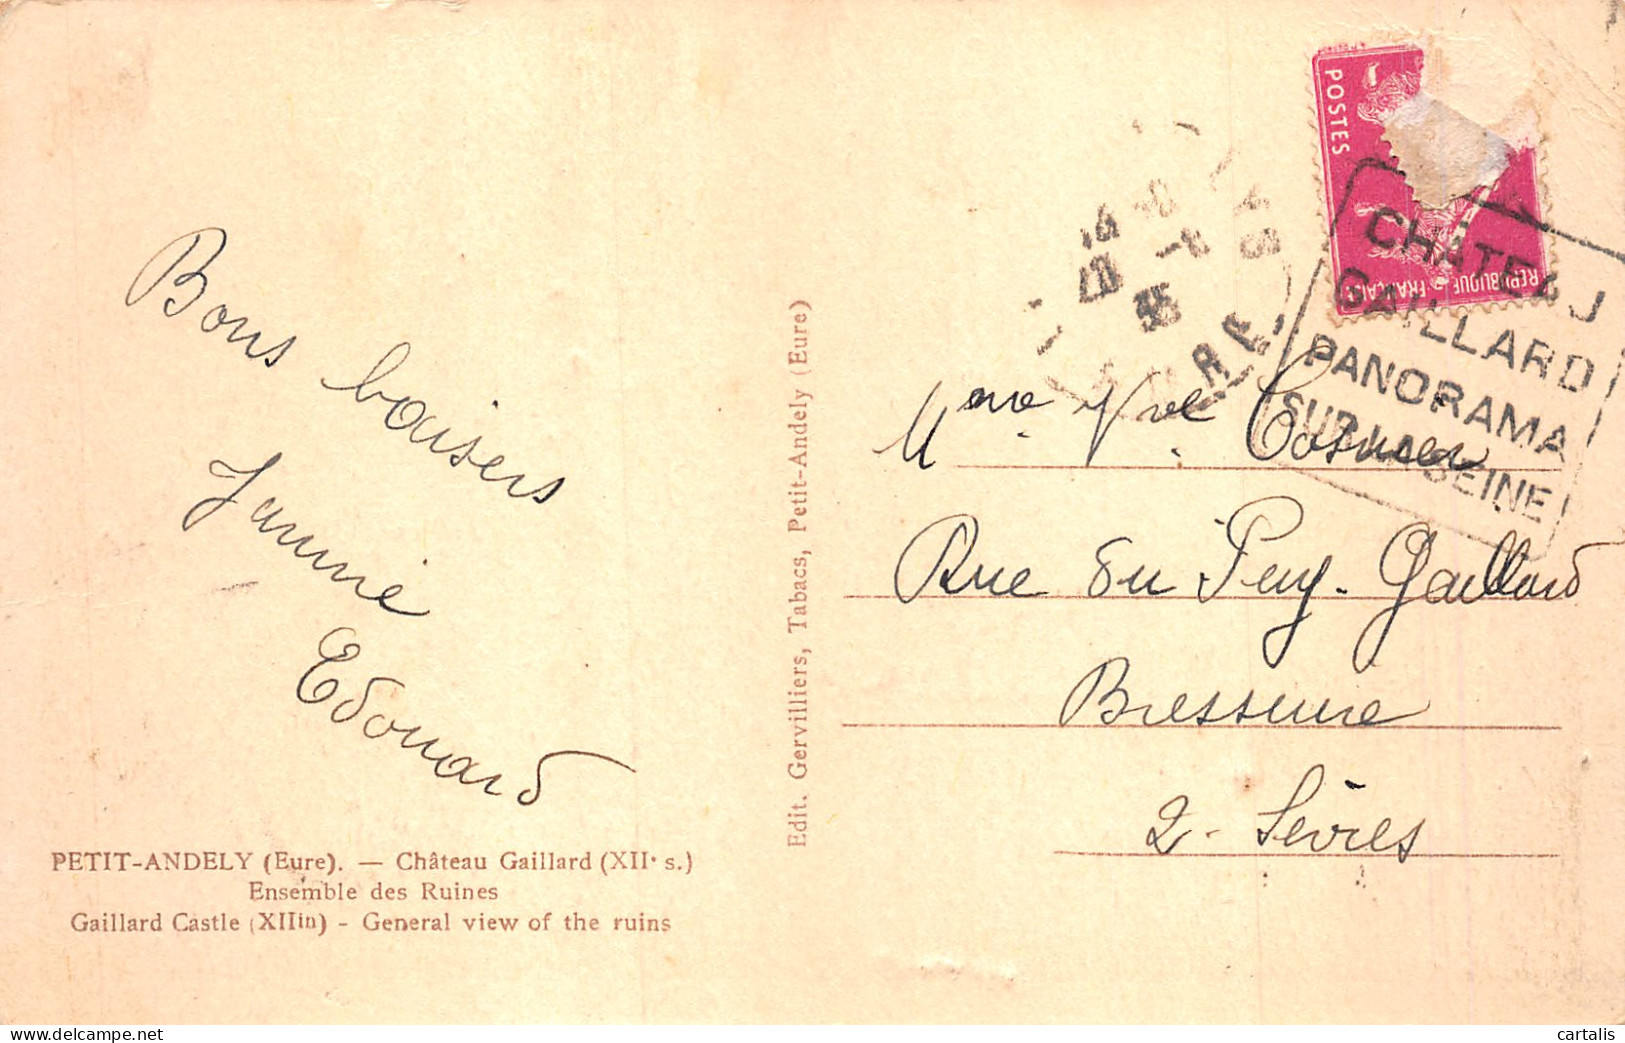 Bons baisers
Jannie
Edouard
PETIT-ANDELY (Eure). — Château Gaillard (XIIe s.)
Ensemble des Ruines
Gaillard Castle (XIIin) - General view of the ruins
Edit. Gervilliers, Tabacs, Petit-Andely (Eure)
POSTES
REPUBLIQUE FRANÇAISE
CHATEAU
GAILLARD
PANORAMA
SUR LA SEINE
35
Mme Vve Cosnier
Rue du Puy-Gaillard
Bressuire
2-Sèvres
cartalis